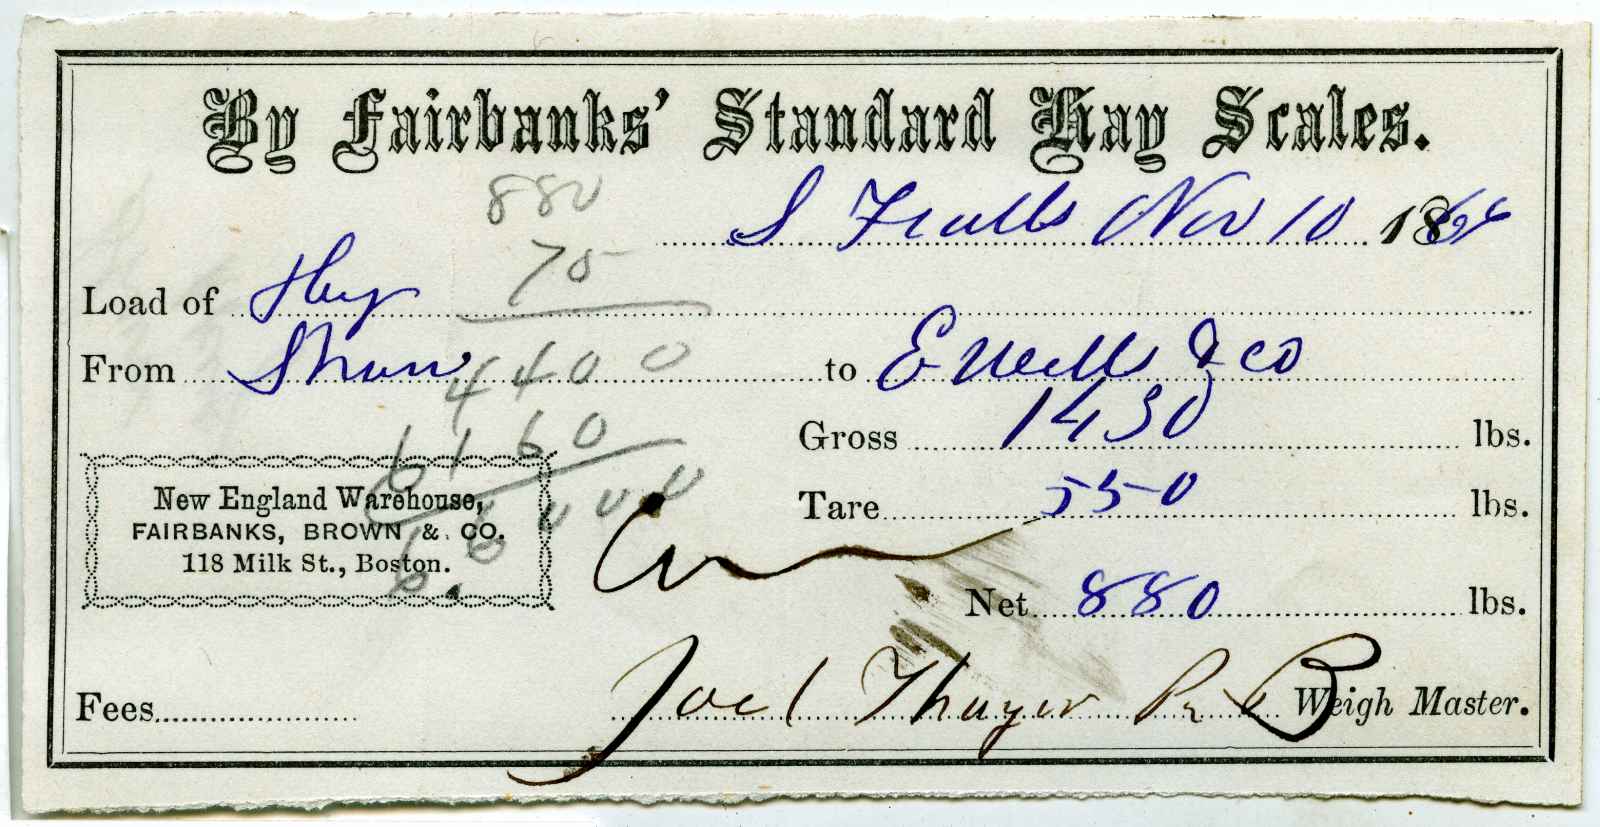 By Fairbanks' Standard Hay Scales.
880
S Falls Nov 10 1864
75
Load of Hay
From Shaw to E Wells & Co
4400
Gross 1430 lbs.
6160
New England Warehouse,
Tare 550 lbs.
FAIRBANKS, BROWN & CO.
118 Milk St., Boston.
Net 880 lbs.
Fees
Joel Thayer Pr B Weigh Master.